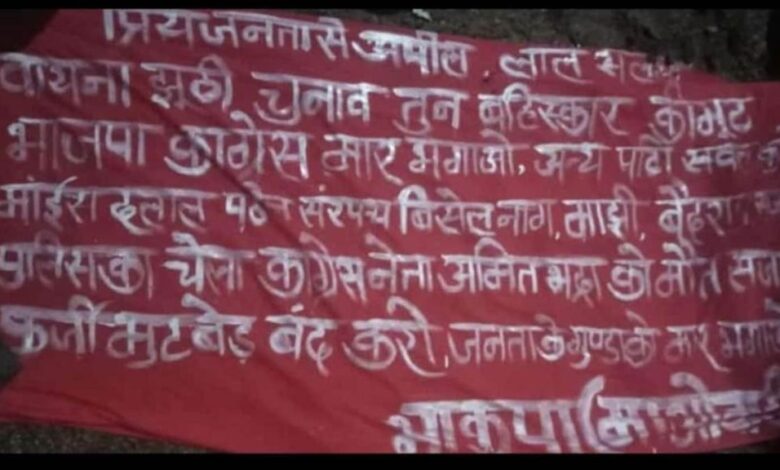 प्रिय जनता से अपील, लाल सलाम
वायना झुठी, चुनाव तुन बहिस्कार कीमुट
भाजपा कांग्रेस मार भगाओ, अन्य पार्टी
दलाल पटेल संरपच बिसेल नाग, माझी,
पुलिस का चेला कांग्रेस नेता अमित भद्रा को मौत सजा
फर्जी मुटबेड़ बंद करो, जनता के गुण्डा के मार भगाओ
भाकपा (माओवादी